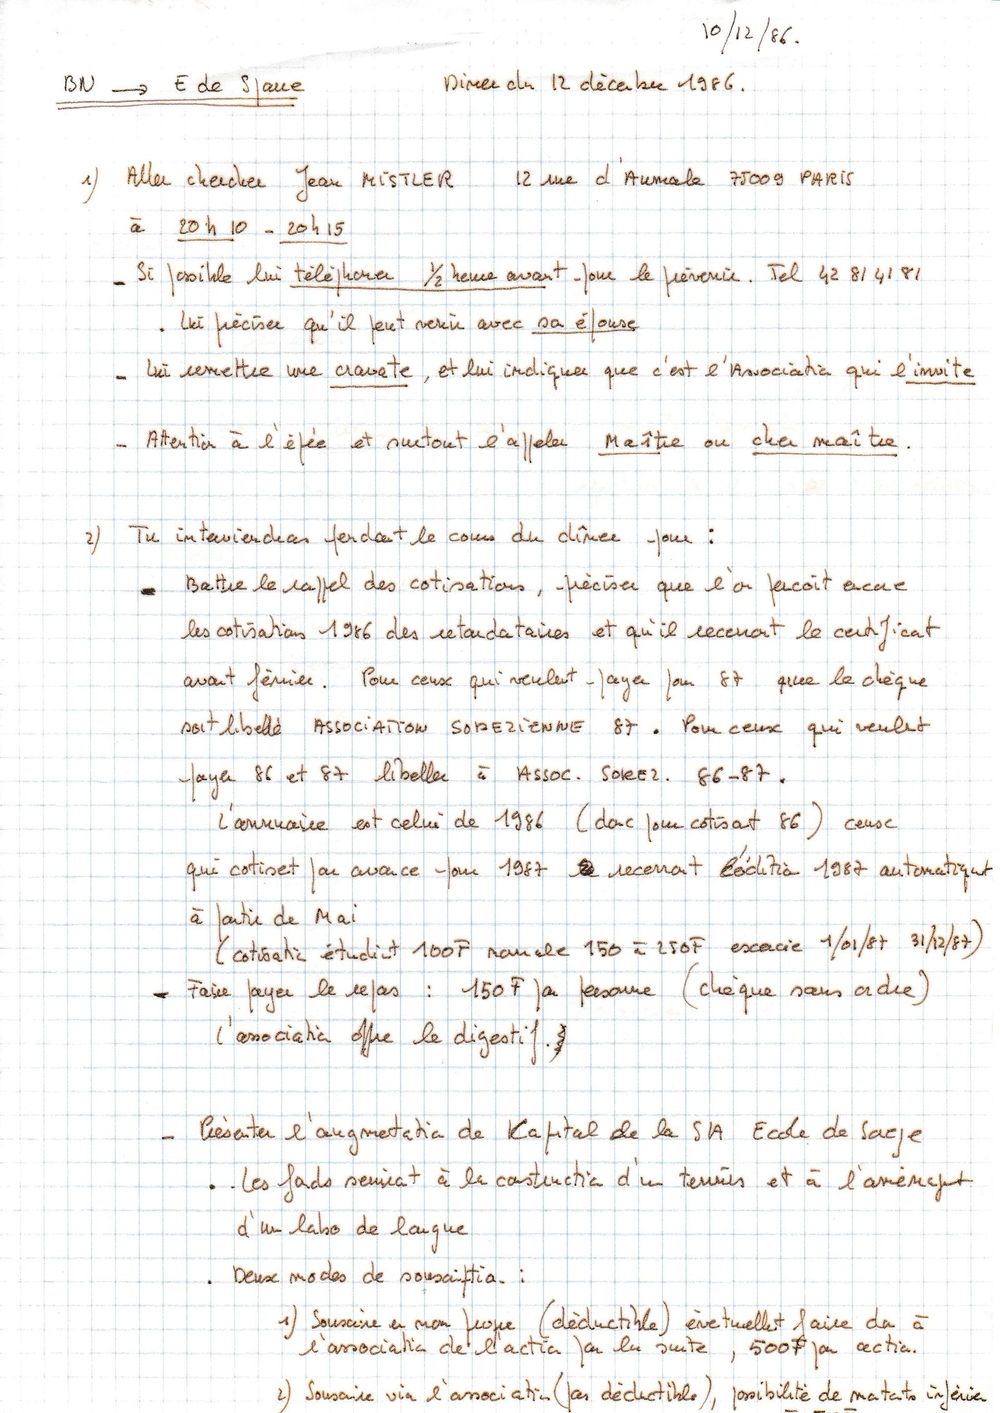 10/12/86.
BN → E de Sparre Diner du 12 décembre 1986.
1) Aller chercher Jean MISTLER 12 rue d'Aumale 75009 PARIS
à 20h10 - 20h15
- Si possible lui téléphoner 1/2 heure avant pour le prévenir. Tel 42 81 41 81
. Lui préciser qu'il peut venir avec sa épouse
- Lui remettre une cravate, et lui indiquer que c'est l'Association qui l'invite
- Attention à l'épée et surtout l'appeler Maître ou cher maître.
2) Tu interviendras pendant le cours du dîner pour :
- Battre le rappel des cotisations, préciser que l'on perçoit encore
les cotisations 1986 des retardataires et qu'il recevront le certificat
avant février. Pour ceux qui veulent payer pour 87 que le chèque
soit libellé ASSOCIATION SOREZIENNE 87. Pour ceux qui veulent
payer 86 et 87 libeller à ASSOC. SOREZ. 86-87.
L'annuaire est celui de 1986 (donc pour cotisant 86) ceux
qui cotisent par avance pour 1987 recevront l'édition 1987 automatiqut
à partir de Mai
(cotisation étudiant 100F normale 150 à 250F exercice 1/01/87 31/12/87)
- Faire payer le repas : 150F par personne (chèque sans ordre)
L'association offre le digestif.
- Présenter l'augmentation de Kapital de la SIA Ecole de Sorèze
. Les fonds servirait à la construction d'un tennis et à l'aménagt
d'un labo de langue
. Deux modes de souscription :
1) Souscrire en nom propre (déductible) éventuellet faire don à
l'association de l'action par la suite, 500F par action.
2) Souscrire via l'association (pas déductible), possibilité de montants inférie